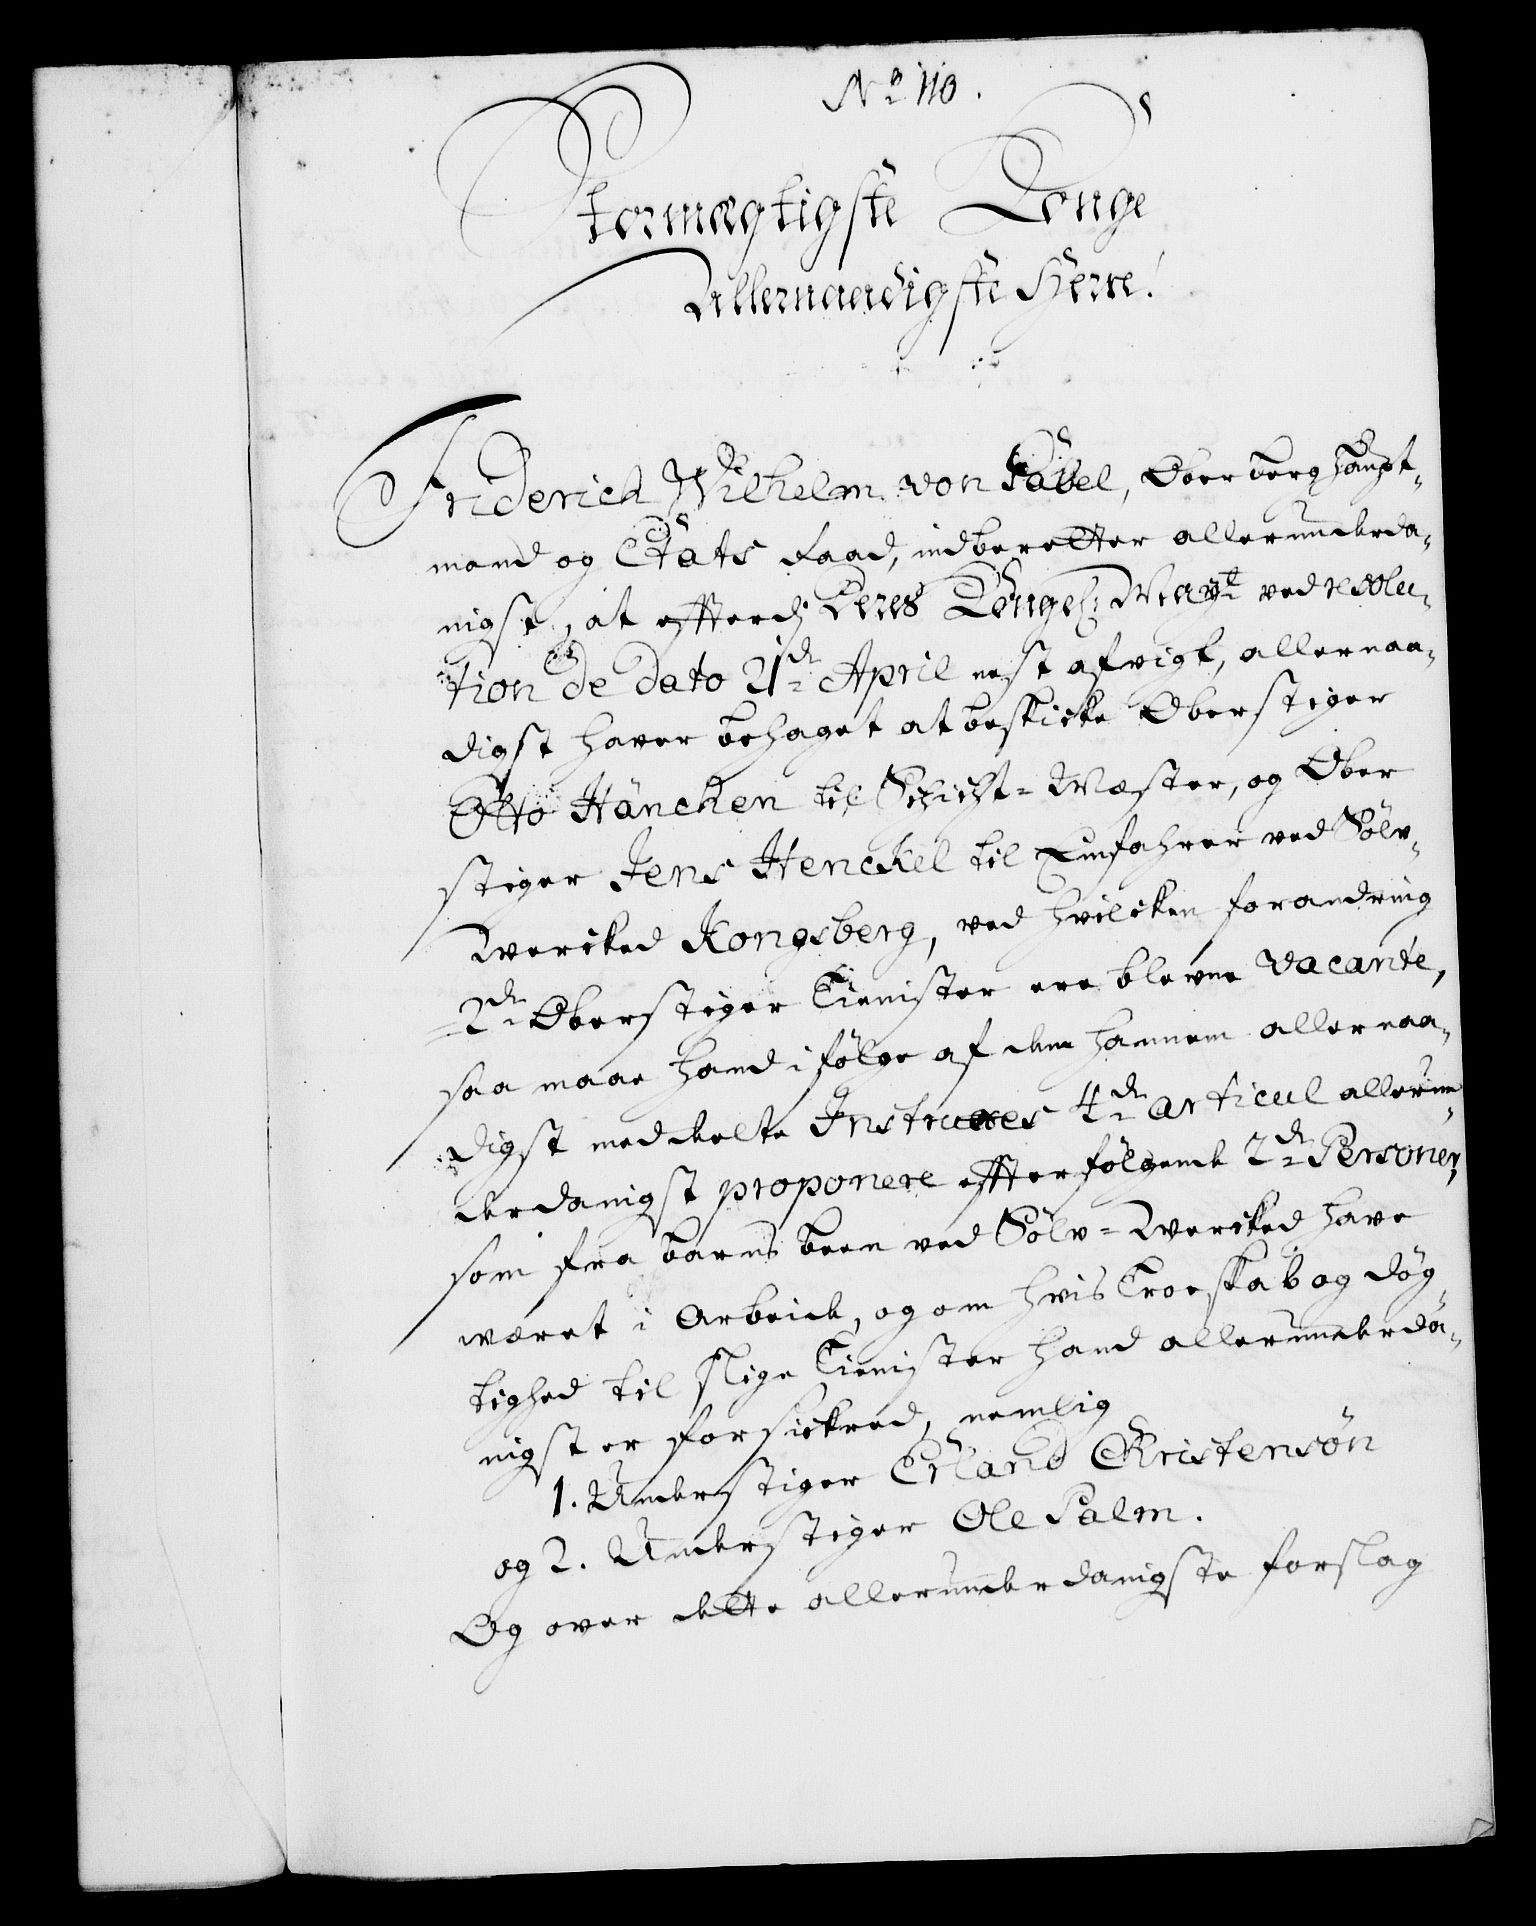 No 110.
Stormægtigste Konge
Allernaadigste Herre!
Friderich Wilhelm von Gabel, Ober berg haupt-
mand og Etats Raad, indberetter allerunderda-
nigst, at efftersom Deres Kongel: Mayt ved resolu-
tion de dato 21de April nest afvigt, allernaa-
digst haver behaget at beskicke Oberstiger
Otto Hänchen til Schicht-Mæster, og Ober
stiger Jens Henckel til Einfahrer ved Sölv-
Wercked Kongsberg, ved hvilcken forandring
2de Oberstiger Tienister ere blevne vacante,
saa maae hand i fölge af dem hannem allernaa-
digst meddelte Instruxes 4de articul allerun-
derdanigst proponere effterfölgende 2de Personer,
som fra barns been ved Sölv-Wercked have
været i Arbeide, og om hvis Troeskab og dög-
tighed til slige Tienister hand allerunderda-
nigst er forsickred, nemlig
1. Understiger Erland Christensön
og 2. Understiger Ole Palm.
Og over dette allerunderdanigste forslag